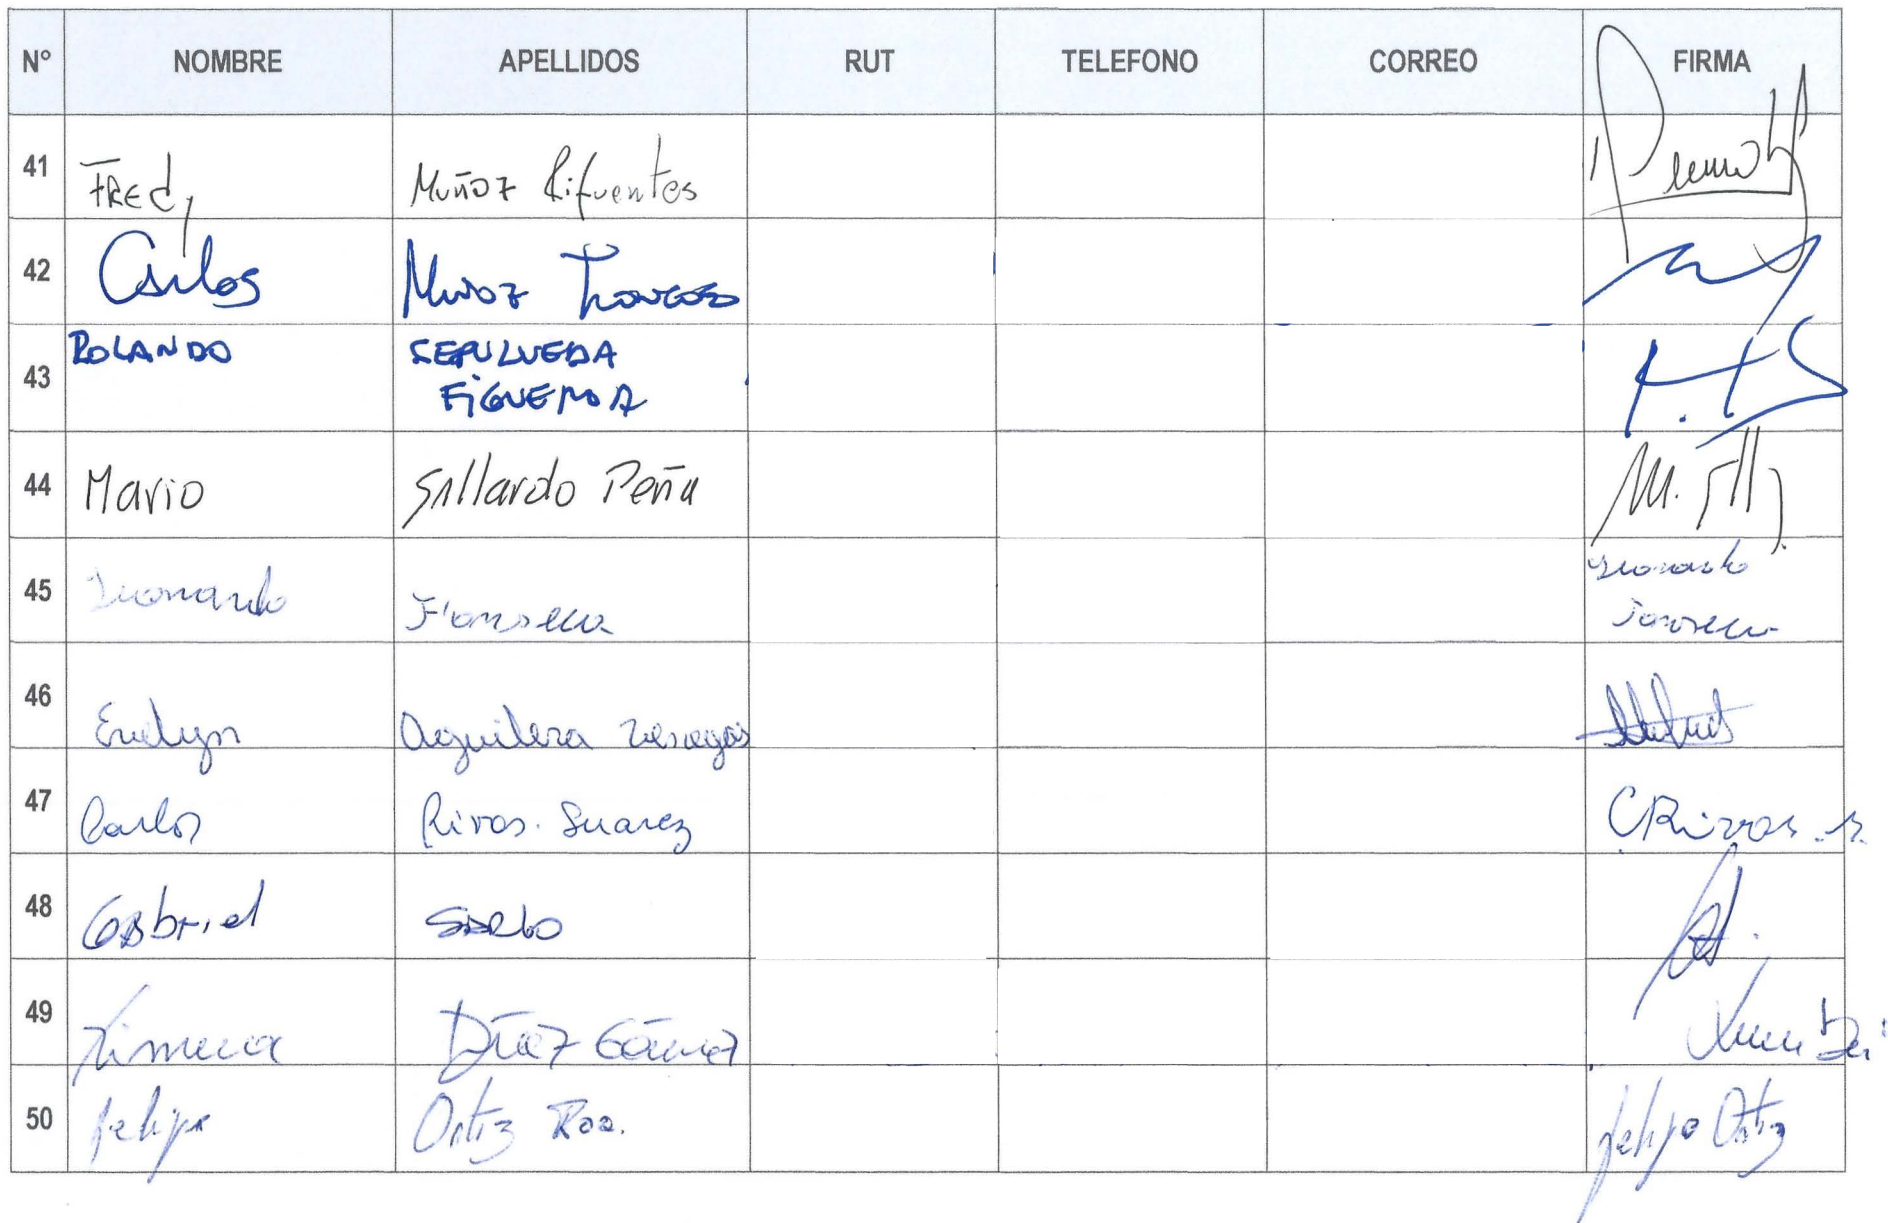 Nº NOMBRE APELLIDOS RUT TELEFONO CORREO FIRMA
41 FREDy Muñoz Sifuentes
42 Carlos Muñoz Troncoso
43 ROLANDO SEPULVEDA
FiGUEROA
44 Mario Gallardo Peña M.
45 Leonardo Fonseca Leonardo
Fonseca
46 Evelyn Aguilera
47 Carlos Rivas. Suarez CRivas.S.
48 Gabriel
49 Ximena Díaz Gómez
50 Felipe Ortiz Roa. Felipe Ortiz